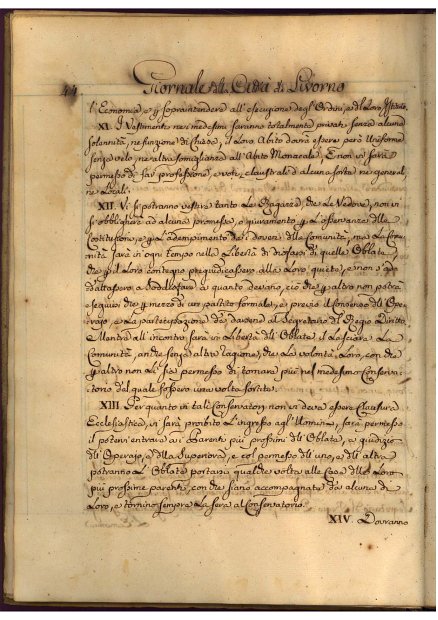 44 Giornale della Città di Livorno
l'Economia e p soprantendere all'esecuzione degl'Ordini, e di Loro Istituto.
XI. I Vestimenti nei medesimi saranno totalmente privati senza alcuna
solennità, ne funzione di Chiesa, il Loro Abito dovrà essere però Uniforme
senza velo, ne altra somiglianza all'Abito Monacale, E non vi sarà
permesso di far professione, e voti claustrali d'alcuna sorta ne general,
ne Locali.
XII. Vi si potranno vestire tanto Le Ragazze, che Le Vedove, non vi
si obblighino ad alcuna promessa, o giuramento p L'osservanza della
Costituzione, e p L'adempimento dei doveri della Comunità, ma La Comu-
nità sarà in ogni tempo nella Libertà di disfarsi di quelle Oblate,
che p il Loro contegno pregiudicassero alla Loro quiete, e non
a quanto devano, ciò che p altro non potrà
eseguirsi che p mezzo di un partito formale, e previo il consenso dell'Ope-
rajo, e La partecipazione da darsene al Segretario del Regio Diritto.
E Mentra all'incontro sarà in Libertà dell'Oblate il Lasciare La
Comunità, anche senza altra cagione, che La volontà Loro, con che
p altro non Le sia permesso di tornare più nel medesimo Conserva-
torio dal quale fossero una volta sortite.
XIII. Per quanto in tali Conservatorj non vi deva essere Clausura
Ecclesiastica, vi sarà proibito L'ingresso agl'Uomini, sarà permesso
il potervi entrare a i Parenti più prossimi dell'Oblate, a giudizio
dell'Operajo, e della Superiora, e col permesso dell'uno, e dell'altra
potranno L'Oblate portarsi qualche volta alle Case dello Loro
più prossime parenti, con che siano accompagnate da alcuna di
Loro, e tornino sempre La sera al Conservatorio.
XIV. Dovranno